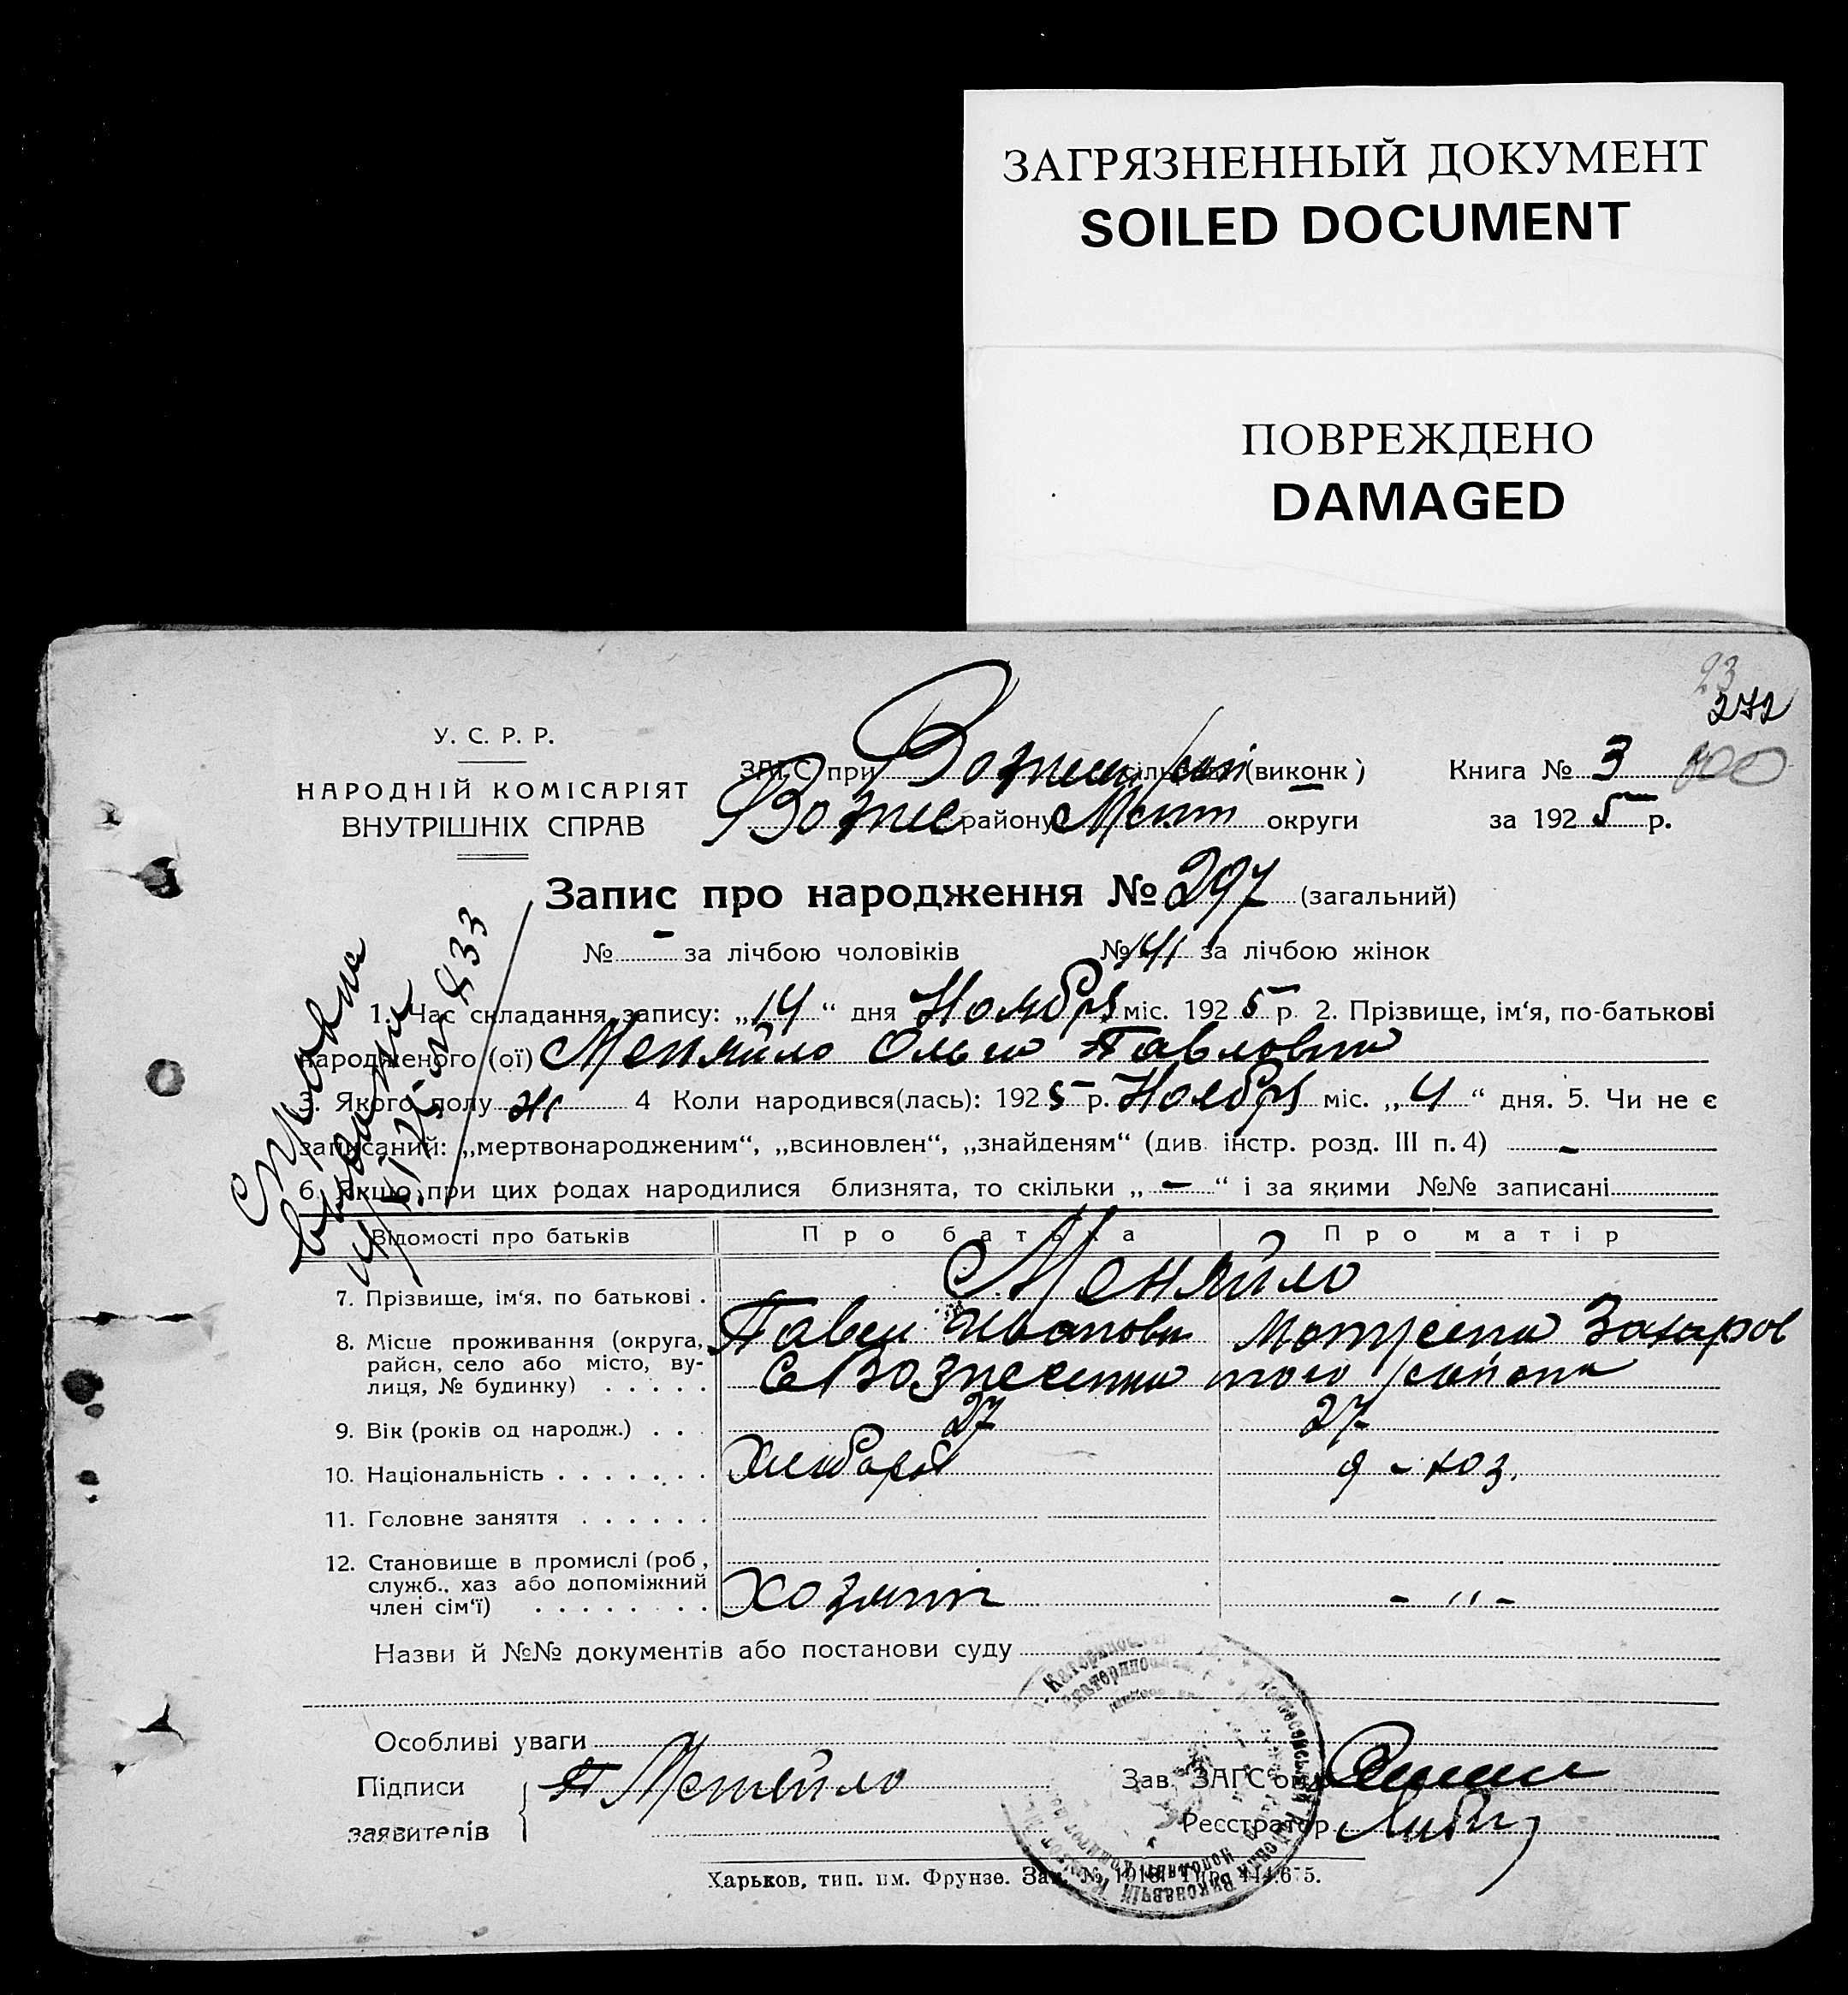 ЗАГРЯЗНЕННЫЙ ДОКУМЕНТ
SOILED DOCUMENT
ПОВРЕЖДЕНО
DAMAGED
23
272
У. С. Р. Р.
НАРОДНІЙ КОМІСАРІЯТ
ВНУТРІШНІХ СПРАВ
ЗАГС при (виконк)
Книга № 3
Возне району Меліт округи
за 1925 р.
Запис про народження № 297 (загальний)
№ - за лічбою чоловіків № 141 за лічбою жінок
1. Час складання запису: „14“ дня Ноября міс. 1925 р. 2. Прізвище, ім'я, по-батькові
народженого (ої) Меняйло Ольга Павловна
3. Якого полу ж 4 Коли народився(лась): 1925 р. Ноября міс. „4“ дня. 5. Чи не є
записаний: „мертвонародженим“, „всиновлен“, „знайденям“ (див. інстр. розд. III п. 4) -
6. Якщо при цих родах народилися близнята, то скільки „-“ і за якими №№ записані
Відомості про батьків Про батька Про матір
7. Прізвище, ім'я, по батькові . Меняйло
Павел Иванов Мотрена Захаров
8. Місце проживання (округа, район, село або місто, вулиця, № будинку) . . . . . С Вознесенка того района
9. Вік (років од народж.) . . . 27 27
10. Національність . . . . . . . Хлебороб д - хоз.
11. Головне заняття . . . . . .
12. Становище в промислі (роб,
служб., хаз або допоміжний
член сім'ї) . . . . . . . . Хозяин - " -
Назви й №№ документів або постанови суду
Особливі уваги
Підписи
заявителів
П Меняйло
Зав. ЗАГС'ом
Реєстратор
Харьков, тип. им. Фрунзе. Зак. № 1916. Тир. 444.675.